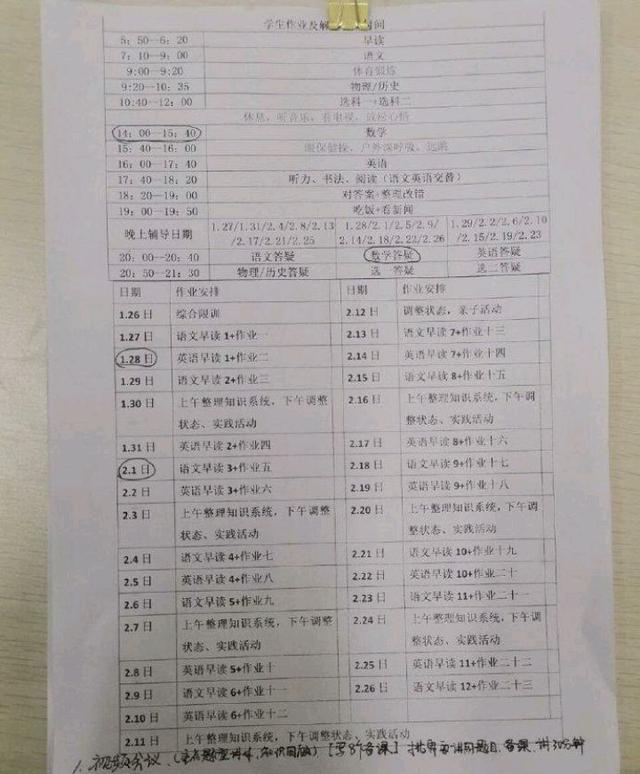 学生作业及解 时间
5：50—6：20 早读
7：10—9：00 语文
9:00—9:20 体育锻炼
9:20—10：35 物理/历史
10:40—12：00 选科一+选科二
休息，听音乐，看电视，放松心情
14：00—15：40 数学
15：40—16：00 眼保健操、户外深呼吸、远眺
16：00—17：40 英语
17：40—18：20 听力、书法、阅读（语文英语交替）
18：20—19：00 对答案+整理改错
19：00—19：50 吃饭+看新闻
晚上辅导日期 1.27/1.31/2.4/2.8/2.13/2.17/2.21/2.25 1.28/2.1/2.5/2.9/2.14/2.18/2.22/2.26 1.29/2.2/2.6/2.10/2.15/2.19/2.23
20：00—20：40 语文答疑 数学答疑 英语答疑
20：50—21：30 物理/历史答疑 选一答疑 选二答疑
日期 作业安排 日期 作业安排
1.26 日 综合限训 2.12 日 调整状态，亲子活动
1.27 日 语文早读 1+作业一 2.13 日 语文早读 7+作业十三
1.28 日 英语早读 1+作业二 2.14 日 英语早读 7+作业十四
1.29 日 语文早读 2+作业三 2.15 日 语文早读 8+作业十五
1.30 日 上午整理知识系统，下午调整状态、实践活动 2.16 日 上午整理知识系统，下午调整状态、实践活动
1.31 日 英语早读 2+作业四 2.17 日 英语早读 8+作业十六
2.1 日 语文早读 3+作业五 2.18 日 语文早读 9+作业十七
2.2 日 英语早读 3+作业六 2.19 日 英语早读 9+作业十八
2.3 日 上午整理知识系统，下午调整状态、实践活动 2.20 日 上午整理知识系统，下午调整状态、实践活动
2.4 日 语文早读 4+作业七 2.21 日 语文早读 10+作业十九
2.5 日 英语早读 4+作业八 2.22 日 英语早读 10+作业二十
2.6 日 语文早读 5+作业九 2.23 日 语文早读 11+作业二十一
2.7 日 上午整理知识系统，下午调整状态、实践活动 2.24 日 上午整理知识系统，下午调整状态、实践活动
2.8 日 英语早读 5+作业十 2.25 日 英语早读 11+作业二十二
2.9 日 语文早读 6+作业十一 2.26 日 语文早读 12+作业二十三
2.10 日 英语早读 6+作业十二
2.11 日 上午整理知识系统，下午调整状态、实践活动
1、视频会议、 知识回顾） 备课】 讲问题目、备课、讲30分钟